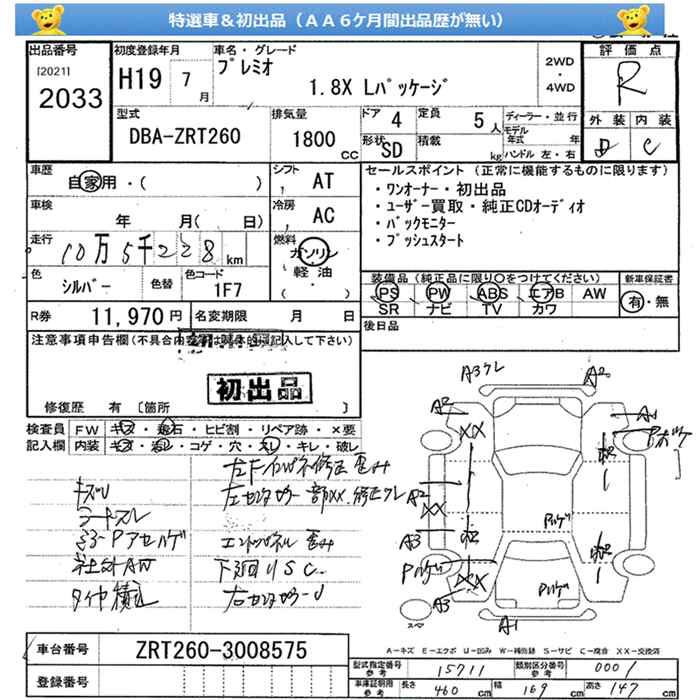 特選車＆初出品（ＡＡ６ケ月間出品歴が無い）
出品番号 初度登録年月 車名・グレード 評価点
[2021]
2033
H19 7月
プレミオ
1.8X Lパッケージ
2WD
・
4WD
R
型式 排気量 ドア 定員 ディーラー・並行 外装 内装
DBA-ZRT260 1800 CC 4 5人 モデル年式 年
形状 SD 積載 kg ハンドル 左・右
D C
車歴 自家用・( ) シフト AT
セールスポイント (正常に機能するものに限ります)
・ワンオーナー・初出品
・ユーザー買取・純正CDオーディオ
・バックモニター
・プッシュスタート
車検 年 月( 日) 冷房 AC
走行 10万5千228km 燃料 ガソリン
軽油
・( )
色 シルバー 色替 色コード 1F7
装備品(純正品に限り〇をつけてください) 新車保証書
PS PW ABS エアB AW 有・無
SR ナビ TV カワ
R券 11,970円 名変期限 月 日
後日品
注意事項申告欄(不具合内容等は具体的に記入して下さい)
初出品
修復歴 有 [箇所 ]
検査員 FW キズ・飛石・ヒビ割・リペア跡・×要
記入欄 内装 キズ・汚レ・コゲ・穴・スレ・キレ・破レ
社外AW
エンドパネル 歪み
下廻りSC
A3 A2
A2 A1
XX
A2
XX
A3
XX
A3
A1
スペア
A－キズ E－エクボ U－凹み W－補修跡 S－サビ C－腐食 XX－交換済
車台番号 ZRT260-3008575
登録番号
型式指定番号 参考 15711 類別区分番号 参考 0001
車庫証明用 参考 長さ 460 cm 幅 169 cm 高さ 147 cm